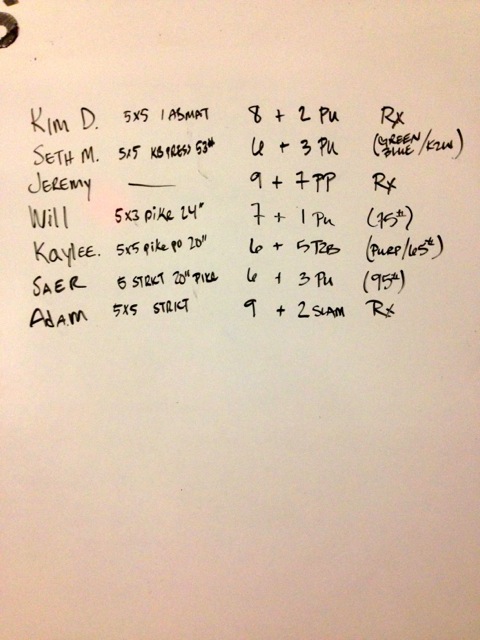 Kim D. 5x5 1 ABMAT 8 + 2 PU Rx
SETH M. 5x5 KB PRESS 53# 6 + 3 PU (GREEN BLUE /
JEREMY — 9 + 7 PP Rx
Will 5x3 pike 24" 7 + 1 PU (75#)
Kaylee. 5x5 pike pu 20" 6 + 5 T2B (PURP/65#)
SAER 5 STRICT 20" PIKE 6 + 3 PU (95#)
ADAM 5x5 STRICT 9 + 2 SLAM Rx